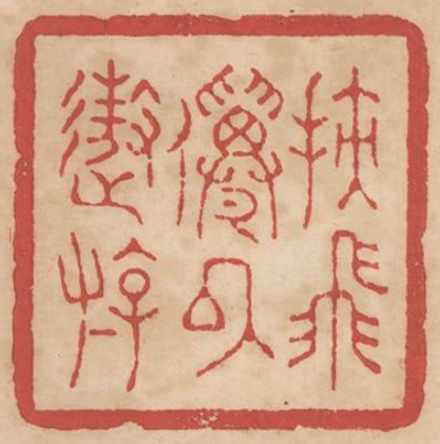 挾飛
僊以
遨斿